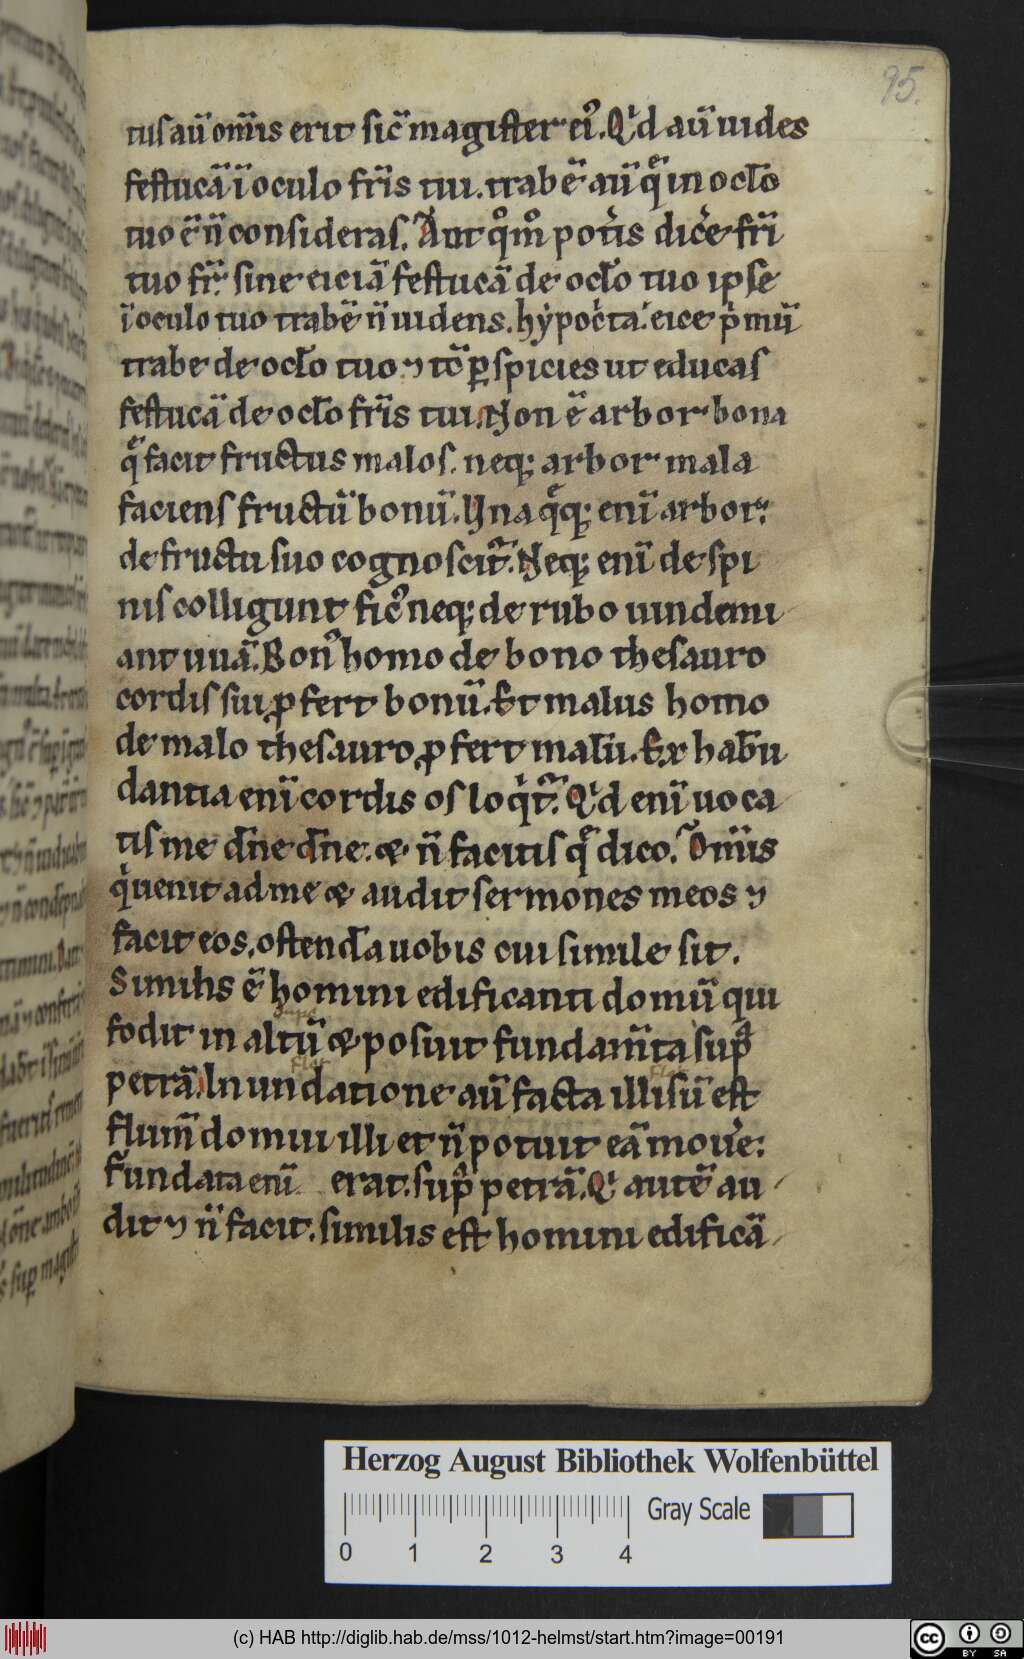 95.
tus aū om̄is erit sic̄ magister ei᾿. Qͥd aū uides
festucā ī oculo fr̄is tui. trabē aū q̄ in oclo
tuo ē n̄ consideras. Aut qͦm͂o potis dic̉e fr̄i
tuo fr̄. sine eiciā festucā de oclo tuo ipse
ī oculo tuo trabē n̄ uidens. hẏpoc̉ta. eice pͥmū
trabe de oclo tuo ⁊ tc̄ ꝑspicies ut educas
festucā de oclo fr̄is tui. Non ē arbor bona
q̄ facit fructus malos. neqꝫ arbor mala
faciens fructū bonū. Una q̄qꝫ enī arbor.
de fructu suo cognoscit᷑. Neqꝫ enī de spi
nis colligunt fic᾿ neqꝫ de rubo uindemi
ant uuā. Bon᾿ homo de bono thesauro
cordis sui ꝓfert bonū. Et malus homo
de malo thesauro ꝓfert malū. Ex habū
dantia enī cordis os loqͥt᷑. Qͥd enī uoca
tis me dn̄e dn̄e. & n̄ facitis q̄ dico. Om̄is
qͥ uenit ad me & audit sermones meos ⁊
facit eos. ostendā uobis cui simile sit.
Similis ē homini edificanti domū qui
fodit in altū & posuit fundam̄ta sup̄
petrā. Inundatione aū facta illisū est
flum̄ domui illi et n̄ potuit eā moủe.
Fundata enī erat. sup̄ petrā. Qͥ autē au
dit ⁊ n̄ facit. similis est homini edificā
Herzog August Bibliothek Wolfenbüttel
0 1 2 3 4 Gray Scale
(c) HAB http://diglib.hab.de/mss/1012-helmst/start.htm?image=00191
cc BY SA